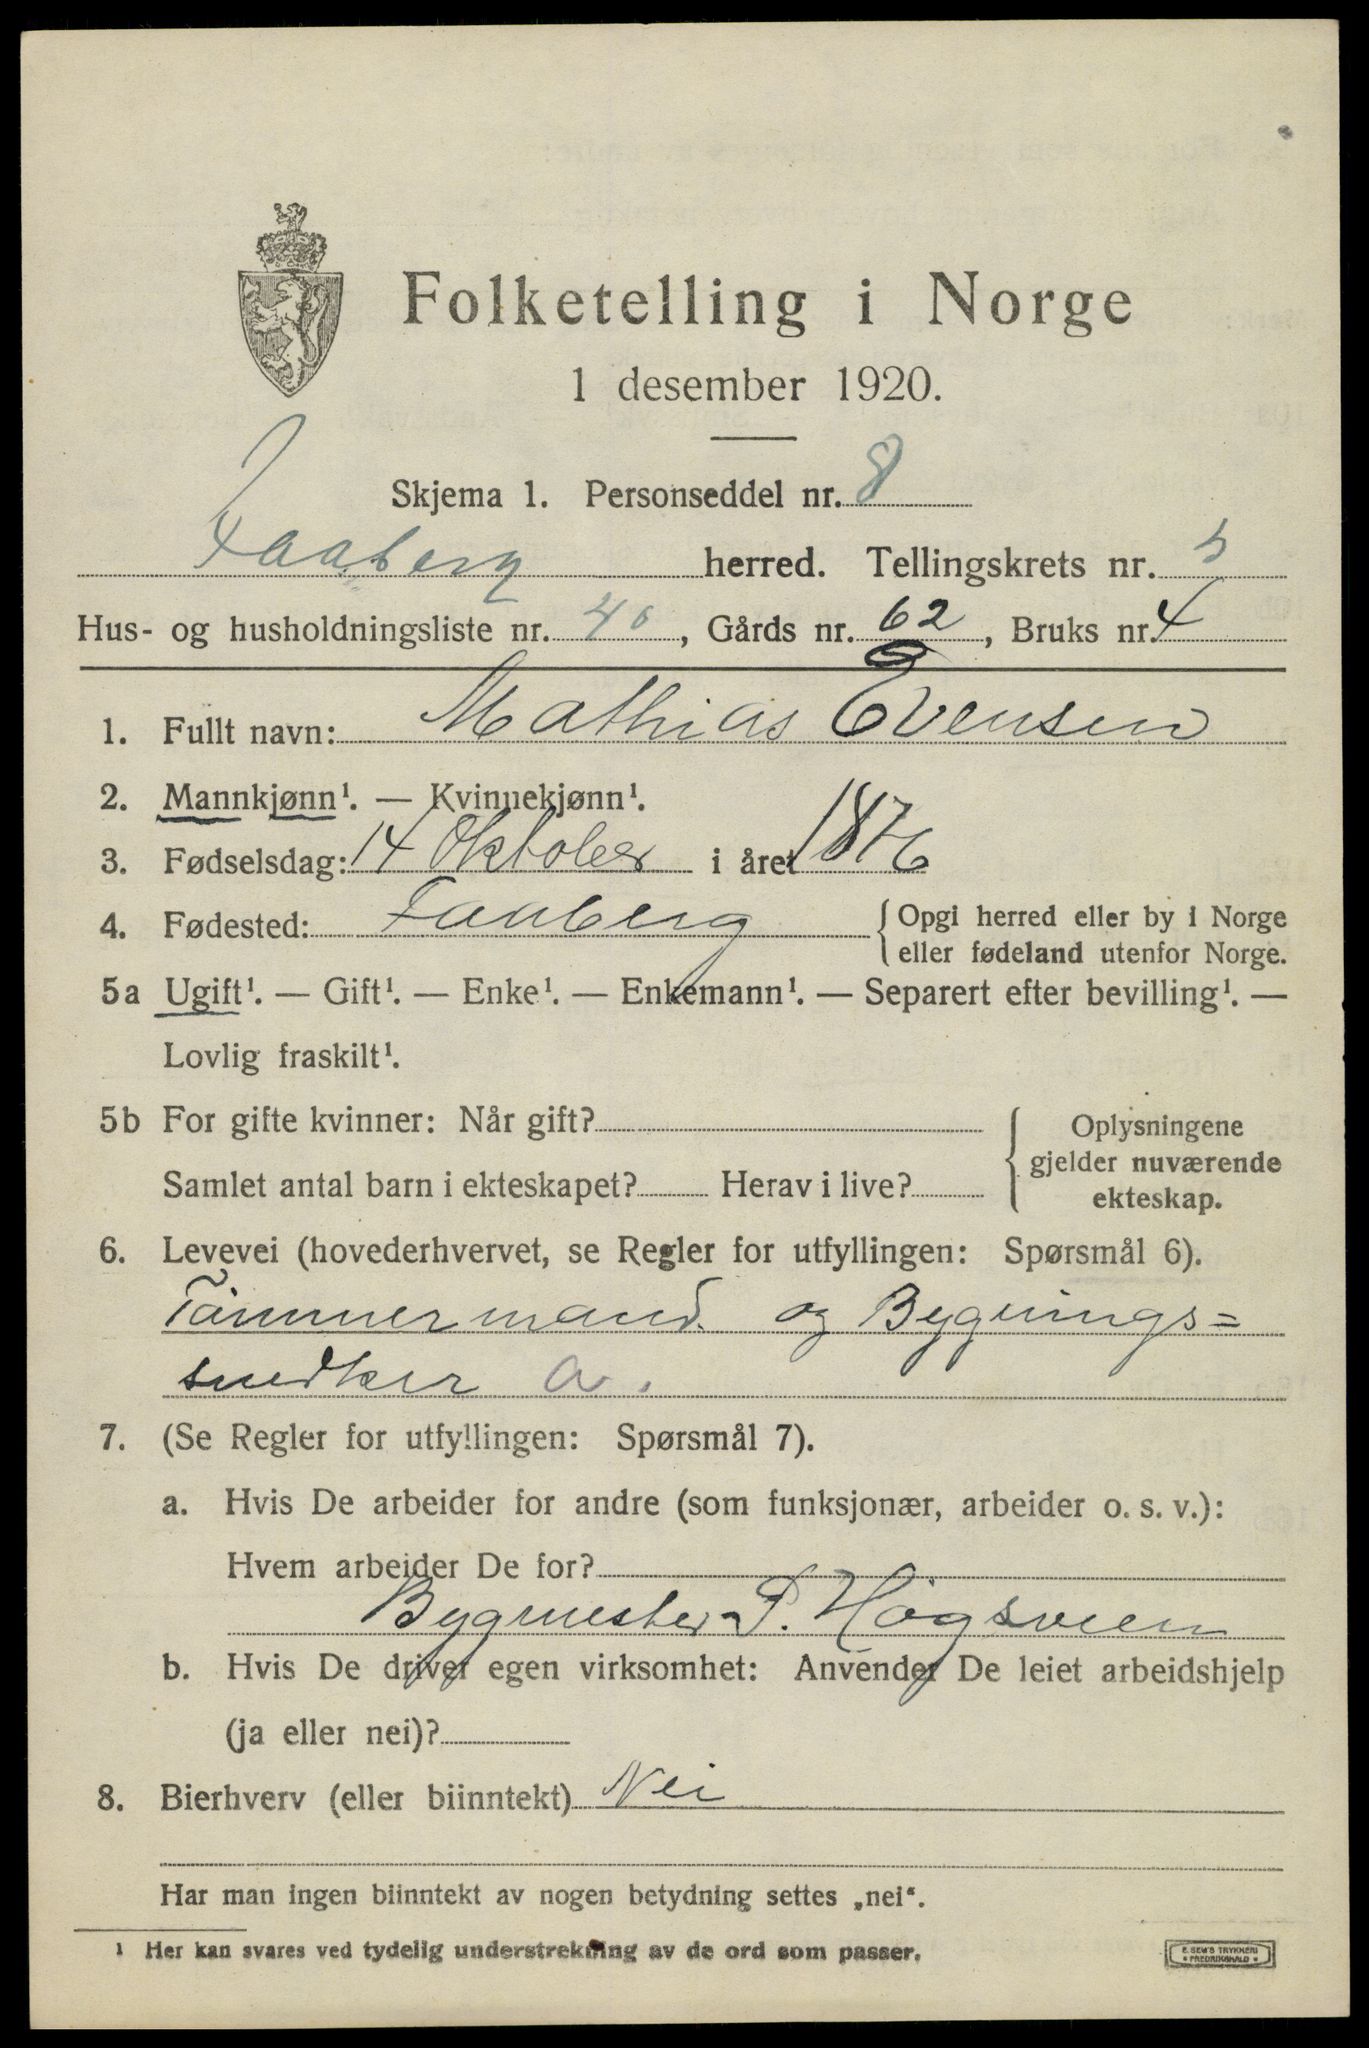 Folketelling i Norge
1 desember 1920.
Skjema 1. Personseddel nr. 8
Faaberg herred. Tellingskrets nr. 5
Hus- og husholdningsliste nr. 40, Gårds nr. 62, Bruks nr. 4
1. Fullt navn: Mathias Evensen
2. Mannkjønn¹. — Kvinnekjønn¹.
3. Fødselsdag: 14 Oktober i året 1876
4. Fødested: Faaberg { Opgi herred eller by i Norge
eller fødeland utenfor Norge.
5a Ugift¹. — Gift¹. — Enke¹. — Enkemann¹. — Separert efter bevilling¹. —
Lovlig fraskilt¹.
5b For gifte kvinner: Når gift?
Samlet antal barn i ekteskapet? Herav i live?
{ Oplysningene
gjelder nuværende
ekteskap.
6. Levevei (hovederhvervet, se Regler for utfyllingen: Spørsmål 6).
Tømmermand og Bygnings=
snedker a.
7. (Se Regler for utfyllingen: Spørsmål 7).
a. Hvis De arbeider for andre (som funksjonær, arbeider o. s. v.):
Hvem arbeider De for?
Bygmester P. Høgsveen
b. Hvis De driver egen virksomhet: Anvender De leiet arbeidshjelp
(ja eller nei)?
8. Bierhverv (eller biinntekt) Nei
Har man ingen biinntekt av nogen betydning settes „nei“.
¹ Her kan svares ved tydelig understrekning av de ord som passer.
E. SEM'S TRYKKERI
* FREDRIKSHALD *